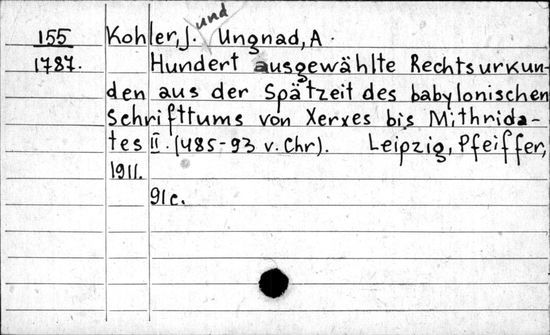 155 Kohler, J. und Ungnad, A.
1787. Hundert ausgewählte Rechtsurkun-
den aus der Spätzeit des babylonischen
Schrifttums von Xerxes bis Mithrida-
tes II. (485-93 v. Chr). Leipzig, Pfeiffer,
1911.
91c.